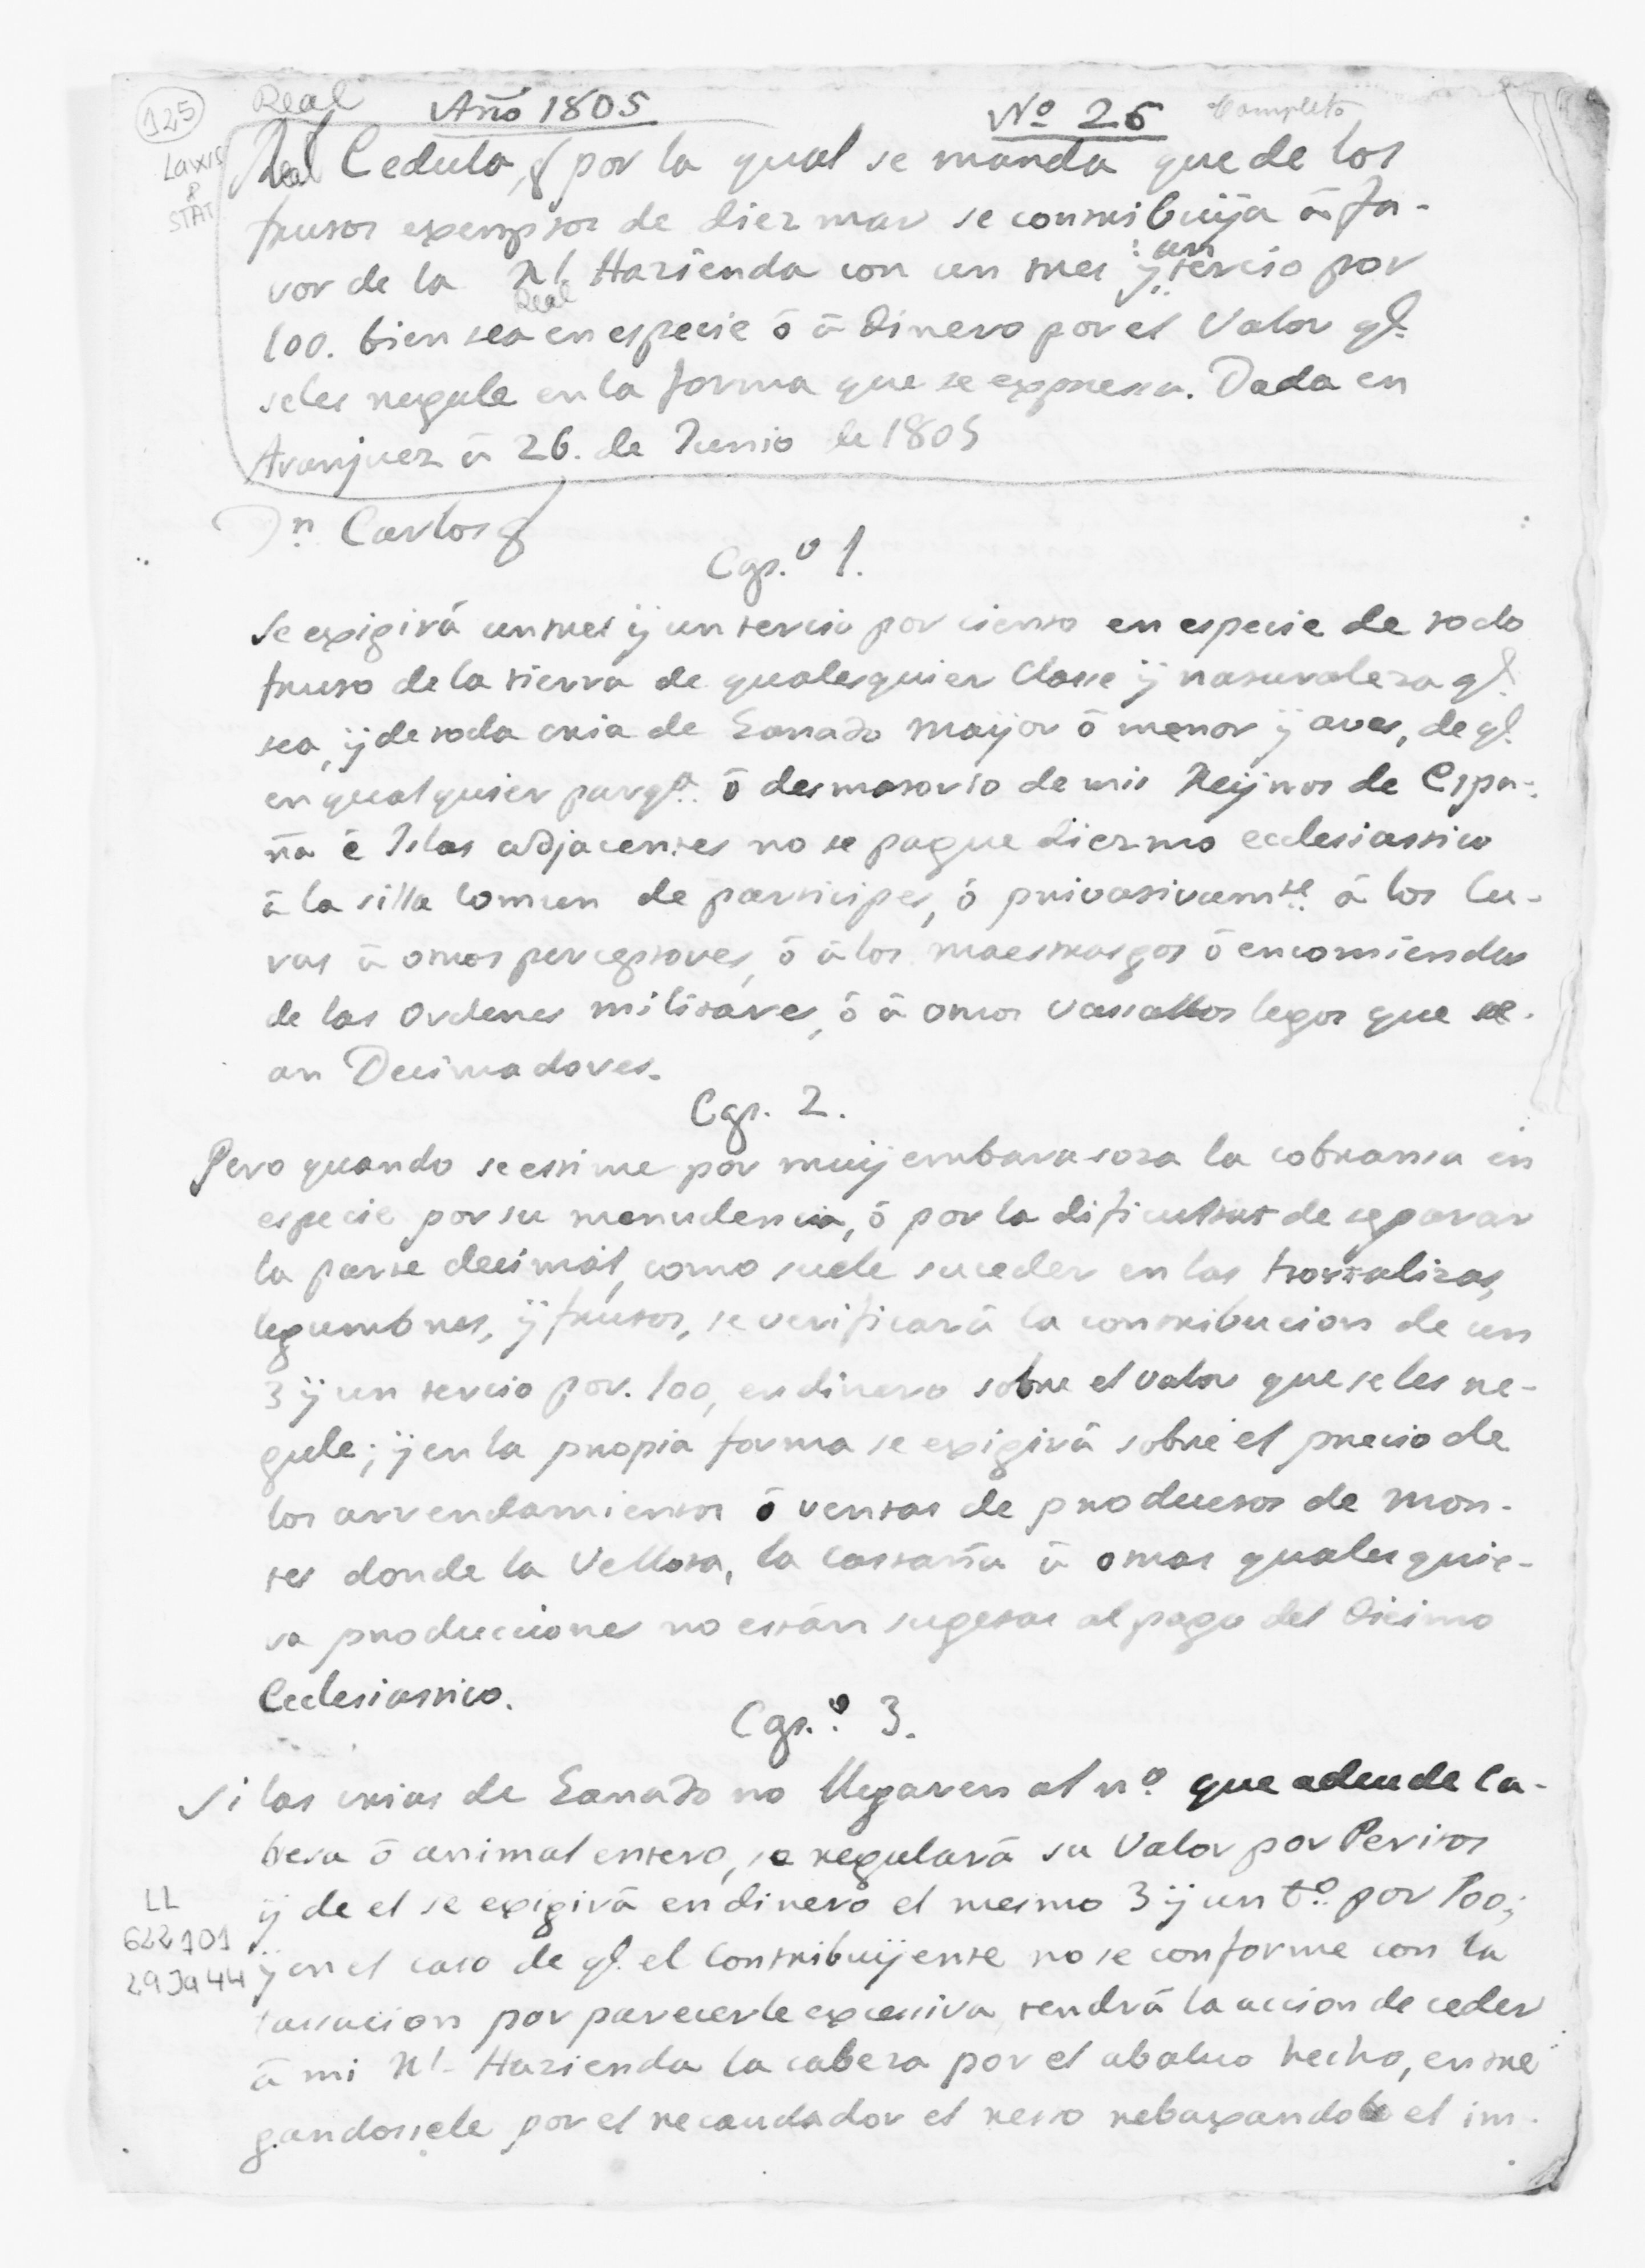 125
Real
Año 1805
Nº 26
Completo
Laws
&
STAT
Real Cedula, & por la qual se manda que de los
frutos exemptos de diezmar se contribuÿa â fa-
vor de la Rl. Hazienda con un tres ÿ un tercio por
Real
100. bien sea en especie ó â dinero por el Valor q͂.
seles regule en la forma que se expresa. Dada en
Aranjuez â 26. de Junio de 1805
Dn. Carlos &
Cap.º 1.
Se exigirá un tres ÿ un tercio por ciento en especie de todo
fruto de la tierra de qualesquier Classe ÿ naturaleza q͂.
sea, ÿ de toda cria de Ganado maÿor ó menor ÿ aves, de q͂.
en qualquier parq.ª ó dezmatorio de mis Reÿnos de Espa-
ña é Islas adjacentes no se pague diezmo ecclesiastico
â la silla comun de participes, ó privativam.te â los Cu-
ras â otros perceptores, ó â los maestrasgos ó encomiendas
de las Ordenes militares, ó â otros vassallos legos que se-
an Decimadores.
Cap. 2.
Pero quando se estime por muÿ embarasosa la cobransa en
especie por su menudencia, ó por la dificultat de separar
la parte decimal, como suele suceder en las hortalizas,
legumbres, ÿ frutos, se verificarâ la contribucion de un
3 ÿ un tercio por. 100, en dinero sobre el valor que se les re-
gule; ÿ en la propia forma se exigirâ sobre el precio de
los arrendamientos ó ventas de productos de mon-
tes donde la Vellota, la Castaña û otras qualesquie-
ra producciones no están sugetas al pago del Dicimo
Ecclesiastico.
Cap.º 3.
Si las crias de Ganado no llegaren al nº que adeude ca-
besa ó animal entero, se regularâ su Valor por Peritos
ÿ de el se exigirâ en dinero el mesmo 3 ÿ un t.º por 100;
ÿ en el caso de q͂. el Contribuÿente no se conforme con la
tassacion por parecerle excessiva, tendrâ la accion de ceder
â mi Rl. Hazienda la cabeza por el abaluo hecho, entre
gandossele por el recaudador el resto rebaxandole el im-
LL
622101
29 Ja 44